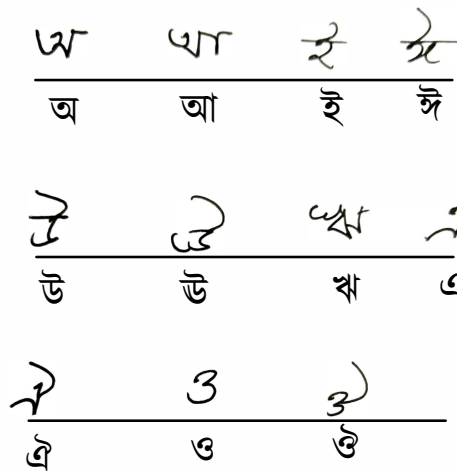 অ আ ই ঈ
অ আ ই ঈ
উ ঊ ঋ এ
উ ঊ ঋ এ
ঐ ও ঔ
ঐ ও ঔ